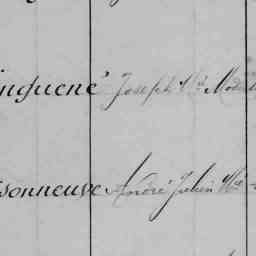 inguené Joseph Mie Mode
sonneuse André Julien Mie